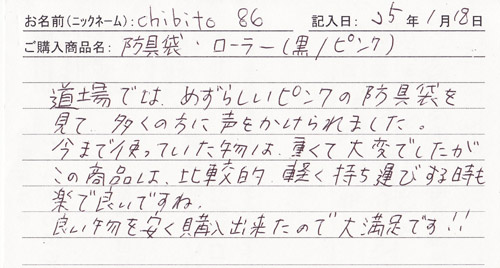 お名前(ニックネーム): chibito 86 記入日: 25年1月18日
ご購入商品名: 防具袋・ローラー(黒/ピンク)
道場では、めずらしいピンクの防具袋を
見て、多くの方に声をかけられました。
今まで使っていた物は、重くて大変でしたが
この商品は、比較的、軽く持ち運びする時も
楽で良いですね。
良い物を安く購入出来たので大満足です!!